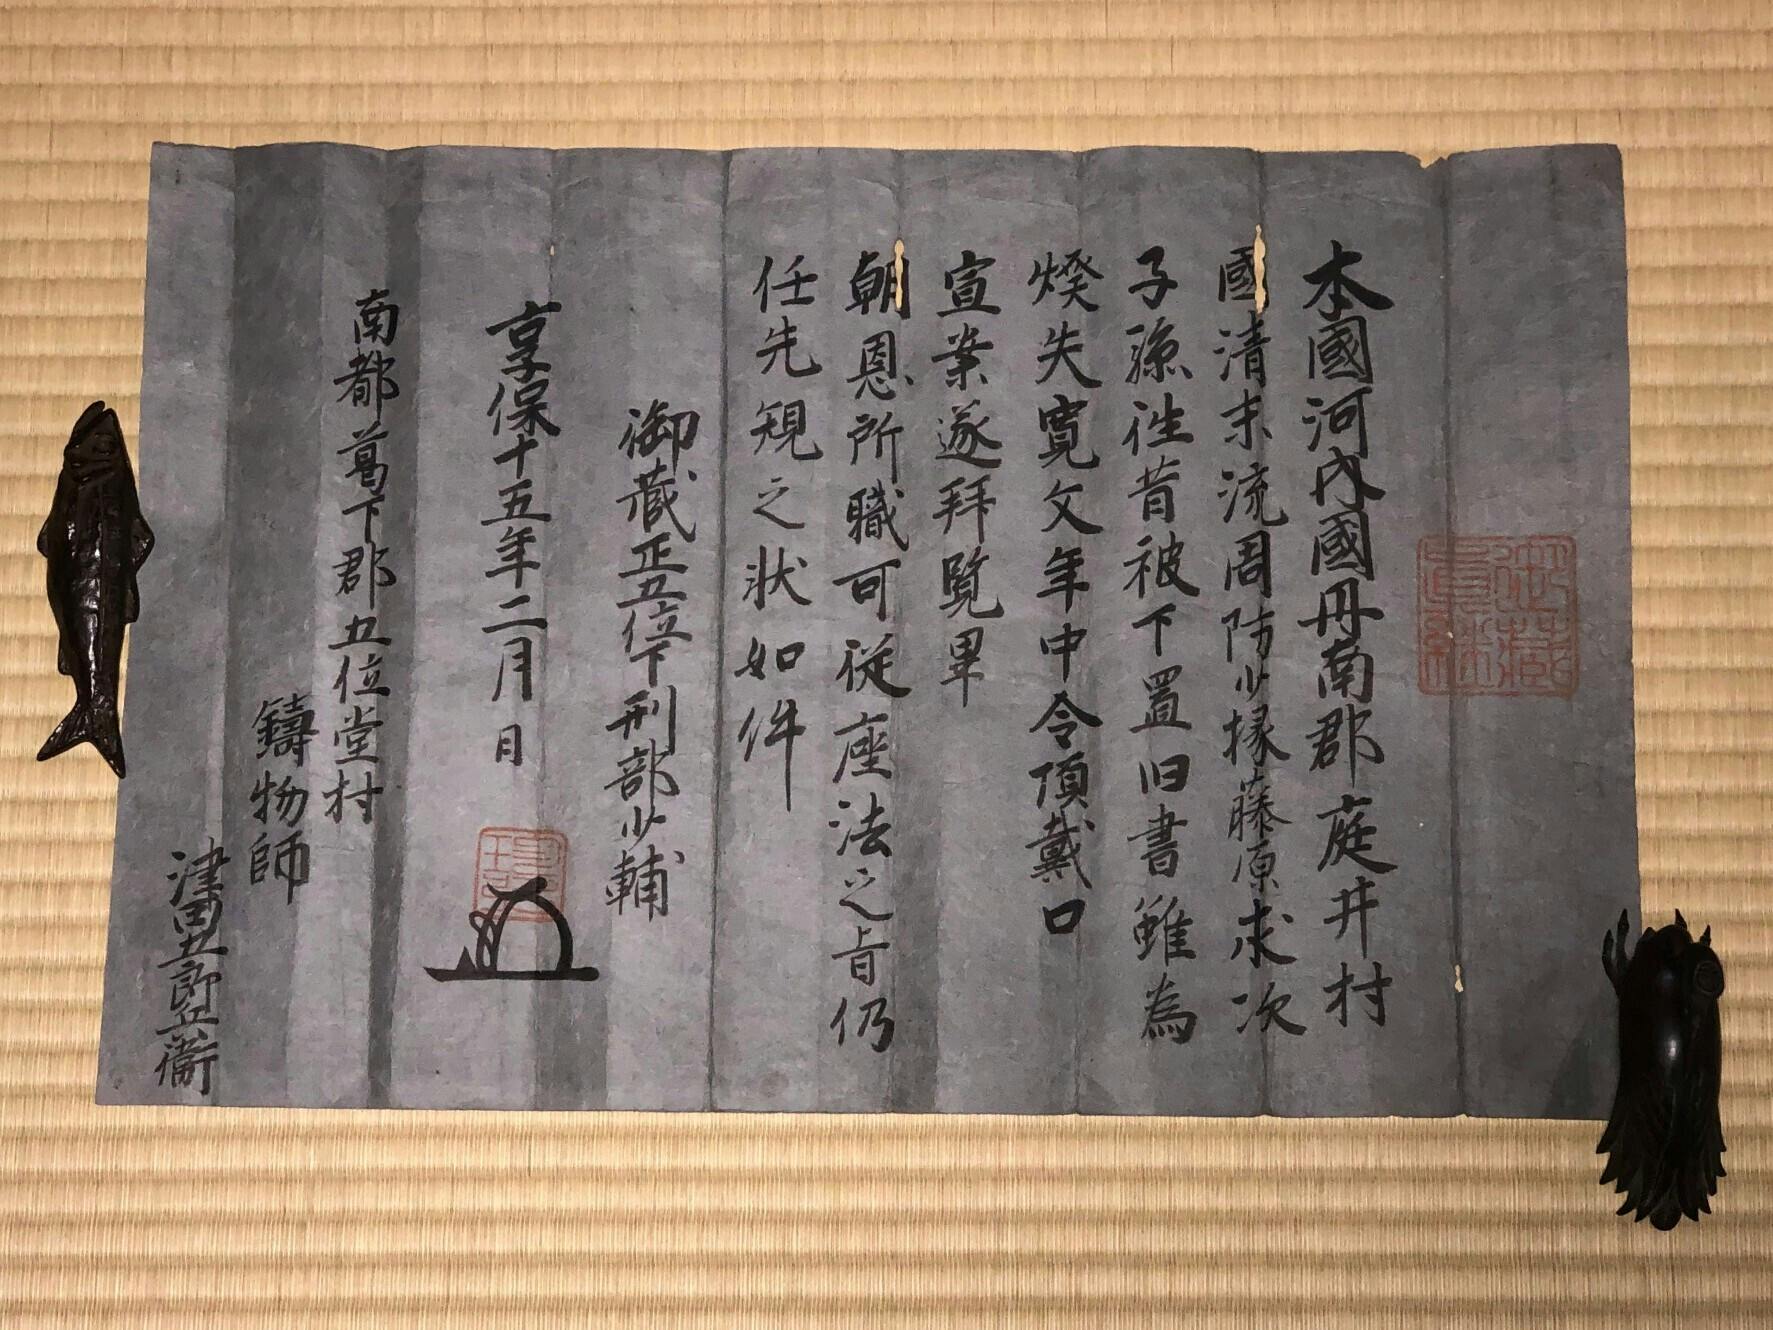 本國河内國丹南郡庭井村
國清末流周防少掾藤原求次
子孫徃昔被下置旧書雖為
燬失寛文年中令頂戴口
宣案遂拜覧畢
朝恩所職可従座法之旨仍
任先規之状如件
御蔵正五位下刑部少輔
享保十五年二月日
南都葛下郡五位堂村
鑄物師
津田五郎兵衞